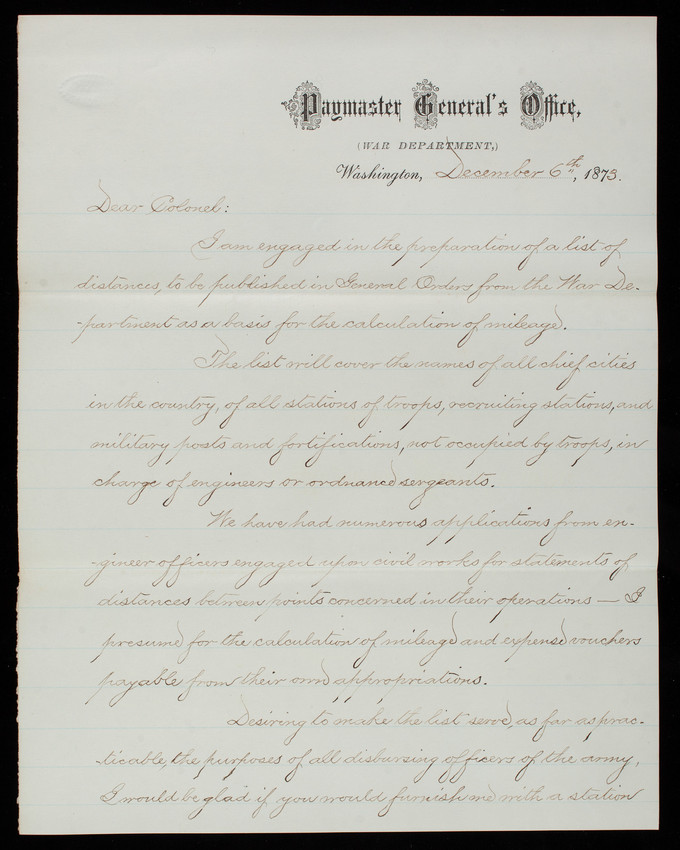 Paymaster General's Office,
(WAR DEPARTMENT,)
Washington, December 6th, 1873.
Dear Colonel:
I am engaged in the preparation of a list of
distances, to be published in General Orders from the War De-
-partment as a basis for the calculation of mileage.
The list will cover the names of all chief cities
in the country, of all stations of troops, recruiting stations, and
military posts and fortifications, not occupied by troops, in
charge of engineers or ordnance sergeants.
We have had numerous applications from en-
-gineer officers engaged upon civil works for statements of
distances between points concerned in their operations — I
presume for the calculation of mileage and expense vouchers
payable from their own appropriations.
Desiring to make the list serve, as far as prac-
-ticable, the purposes of all disbursing officers of the army,
I would be glad if you would furnish me with a station